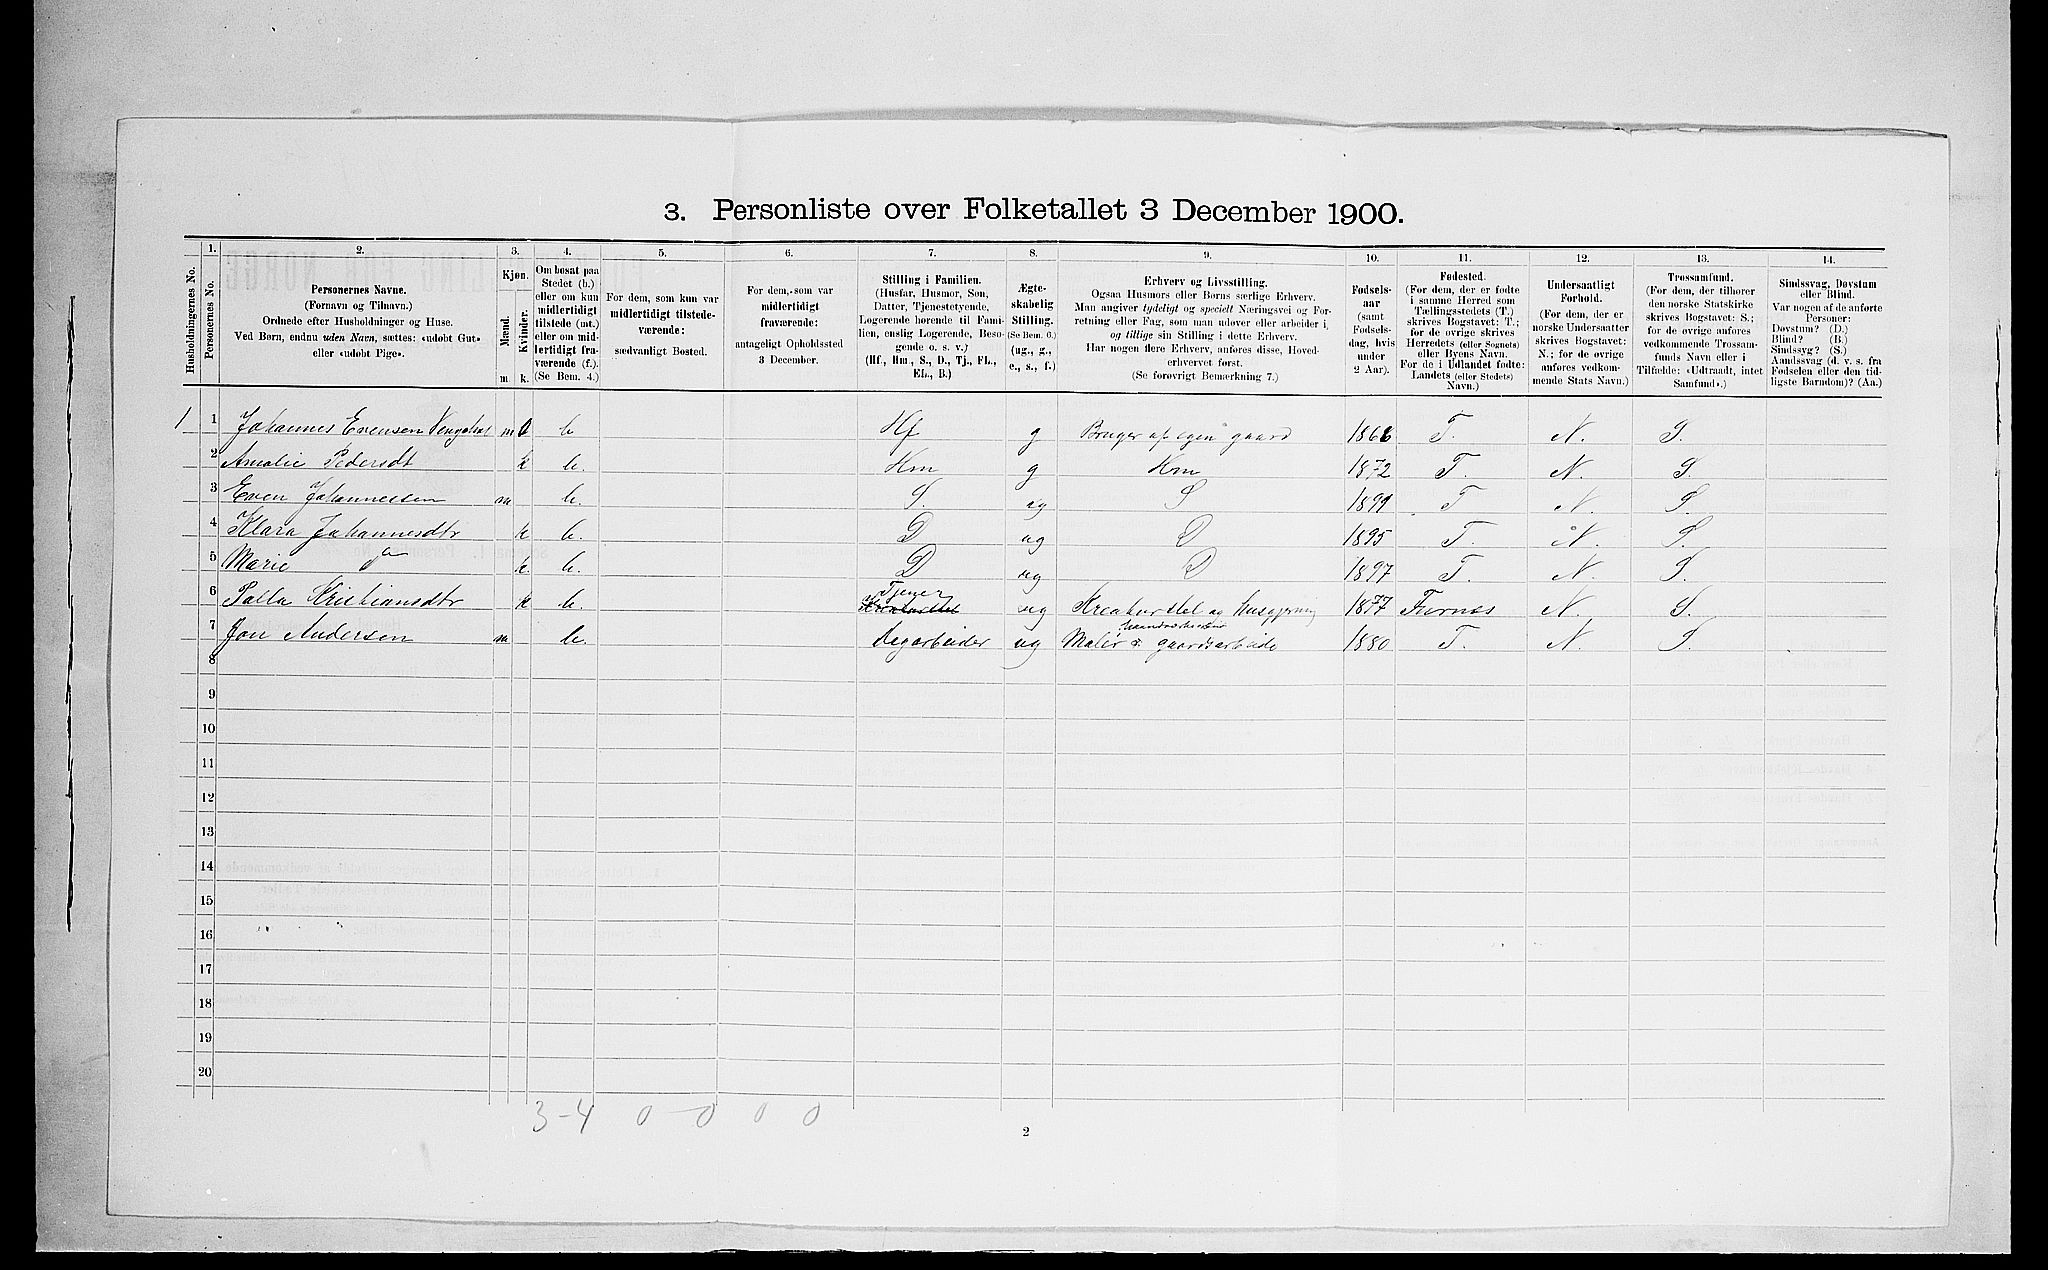 3. Personliste over Folketallet 3 December 1900.
Husholdningernes No.
1.
Personernes No.
2.
Personernes Navne.
(Fornavn og Tilnavn.)
Ordnede efter Husholdninger og Huse.
Ved Børn, endnu uden Navn, sættes: «udøbt Gut»
eller «udøbt Pige».
3.
Kjøn.
Mænd.
Kvinder.
m. k.
4.
Om bosat paa
Stedet (b.)
eller om kun
midlertidigt
tilstede (mt.)
eller om mid-
lertidigt fra-
værende (f.).
(Se Bem. 4.)
5.
For dem, som kun var
midlertidigt tilstede-
værende:
sædvanligt Bosted.
6.
For dem, som var
midlertidigt
fraværende:
antageligt Opholdssted
3 December.
7.
Stilling i Familien.
(Husfar, Husmor, Søn,
Datter, Tjenestetyende,
Logerende hørende til Fami-
lien, enslig Logerende, Besø-
gende o. s. v.)
(Hf., Hm., S., D., Tj., FL.,
EL., B.)
8.
Ægte-
skabelig
Stilling.
(Se Bem. 6.)
(ug., g.,
e., s., f.)
9.
Erhverv og Livsstilling.
Ogsaa Husmors eller Børns særlige Erhverv.
Man angiver tydeligt og specielt Næringsvei og For-
retning eller Fag, som man udøver eller arbeider i,
og tillige sin Stilling i dette Erhverv.
Har nogen flere Erhverv, anføres disse, Hoved-
erhvervet først.
(Se forøvrigt Bemærkning 7.)
10.
Fødsels-
aar
(samt
Fødsels-
dag, hvis
under
2 Aar).
11.
Fødested.
(For dem, der er fødte
i samme Herred som
Tællingsstedets (T.)
skrives Bogstavet: T.;
for de øvrige skrives
Herredets (eller Sognets)
eller Byens Navn.
For de i Udlandet fødte:
Landets (eller Stedets)
Navn.)
12.
Undersaatligt
Forhold.
(For dem, der er
norske Undersaatter
skrives Bogstavet:
N.; for de øvrige
anføres vedkom-
mende Stats Navn.)
13.
Trossamfund.
(For dem, der tilhører
den norske Statskirke
skrives Bogstavet: S.;
for de øvrige anføres
vedkommende Trossam-
funds Navn eller i
Tilfælde: «Udtraadt, intet
Samfund».)
14.
Sindssvag, Døvstum
eller Blind.
Var nogen af de anførte
Personer:
Døvstum? (D.)
Blind? (B.)
Sindssyg? (S.)
Aandssvag (d. v. s. fra
Fødselen eller den tid-
ligste Barndom)? (Aa.)
1 1 Johannes Evensen m b Hf g Bruger af egen gaard 1866 T. N. S.
2 Amalie Pedersdt k b. Hm g Hm 1872 T. N. S.
3 Even Johannessen m b. S. ug S 1891 T N. S.
4 Klara Johannesdtr k b. D ug D 1895 T. N. S.
5 Marie do k. b. D ug D 1897 T. N. S.
6 Kristiansdtr k b. Tjener ug Kreaturstel og Husgjerning 1877 Furnes N. S.
7 Jon Andersen m b. Dagarbeider ug Maler & gaardsarbeide 1880 T. N. S.
8
9
10
11
12
13
14
15
16
17
18
19
20
3-4 0-0 0 0
2